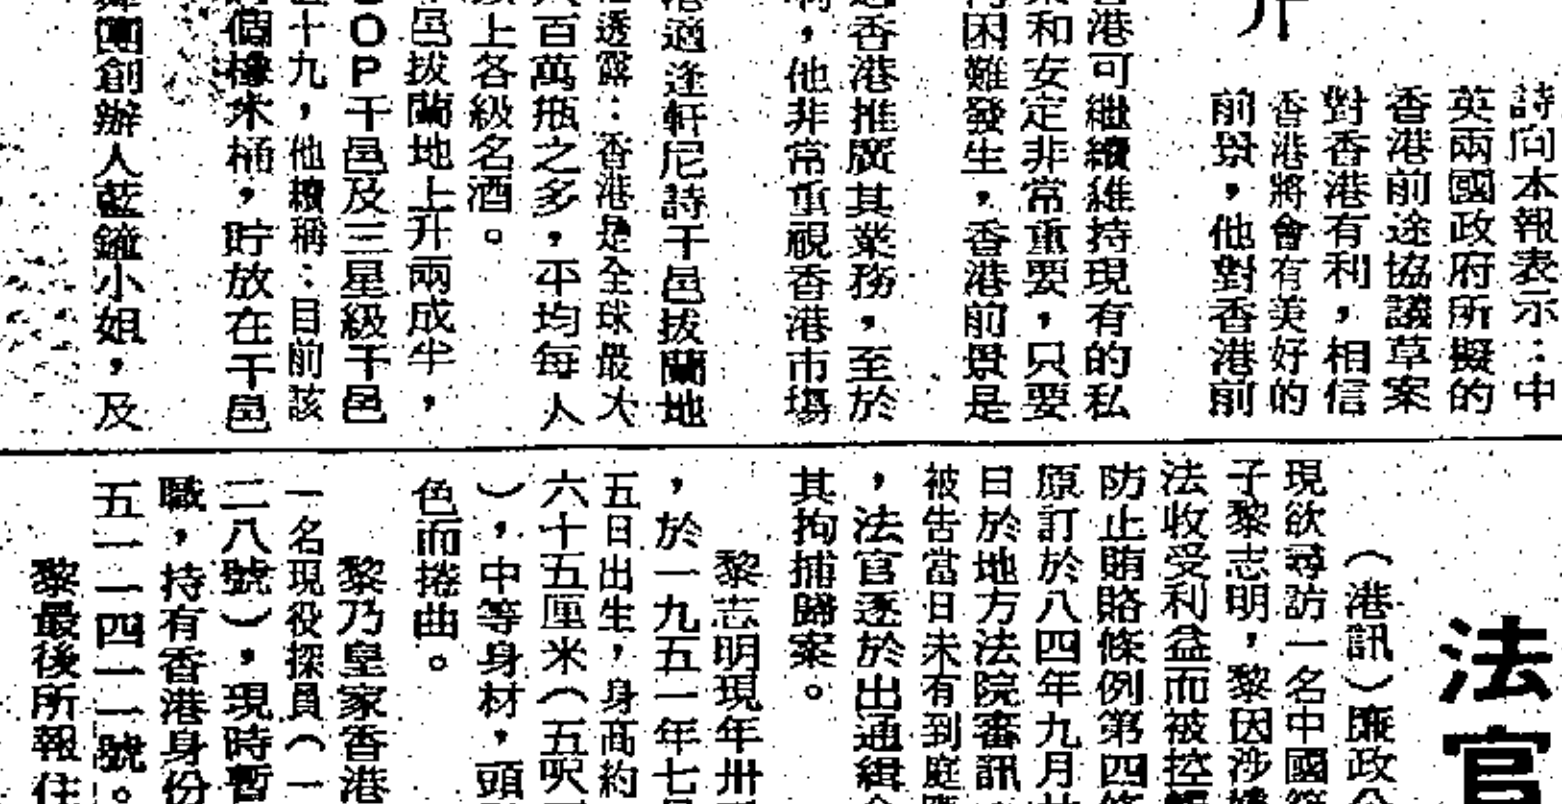 升
詩向本報表示：中
英兩國政府所擬的
香港前途協議草案
對香港有利，相信
香港將會有美好的
前景，他對香港前
香港可繼續維持現有的私
和安定非常重要，只要
困難發生，香港前景是
香港推廣其業務，至於
，他非常重視香港市場
港適逢軒尼詩干邑拔蘭地
透露：香港是全球最大
百萬瓶之多，平均每人
上各級名酒。
邑拔蘭地上升兩成半，
OP干邑及三星級干邑
十九，他續稱：目前該
個橡木桶，貯放在干邑
團創辦人藍鐘小姐，及
法官
（港訊）廉政公
現欲尋訪一名中國籍
子黎志明，黎因涉嫌
法收受利益而被控觸
防止賄賂條例第四條
原訂於八四年九月廿
日於地方法院審訊，
被告當日未有到庭應
，法官遂於出通緝令
其拘捕歸案。
黎志明現年卅
，於一九五一年七月
五日出生，身高約
六十五厘米（五呎五
），中等身材，頭
色而捲曲。
黎乃皇家香港
一名現役探員（一
二八號），現時暫
職，持有香港身份
五一一四一一號。
黎最後所報住